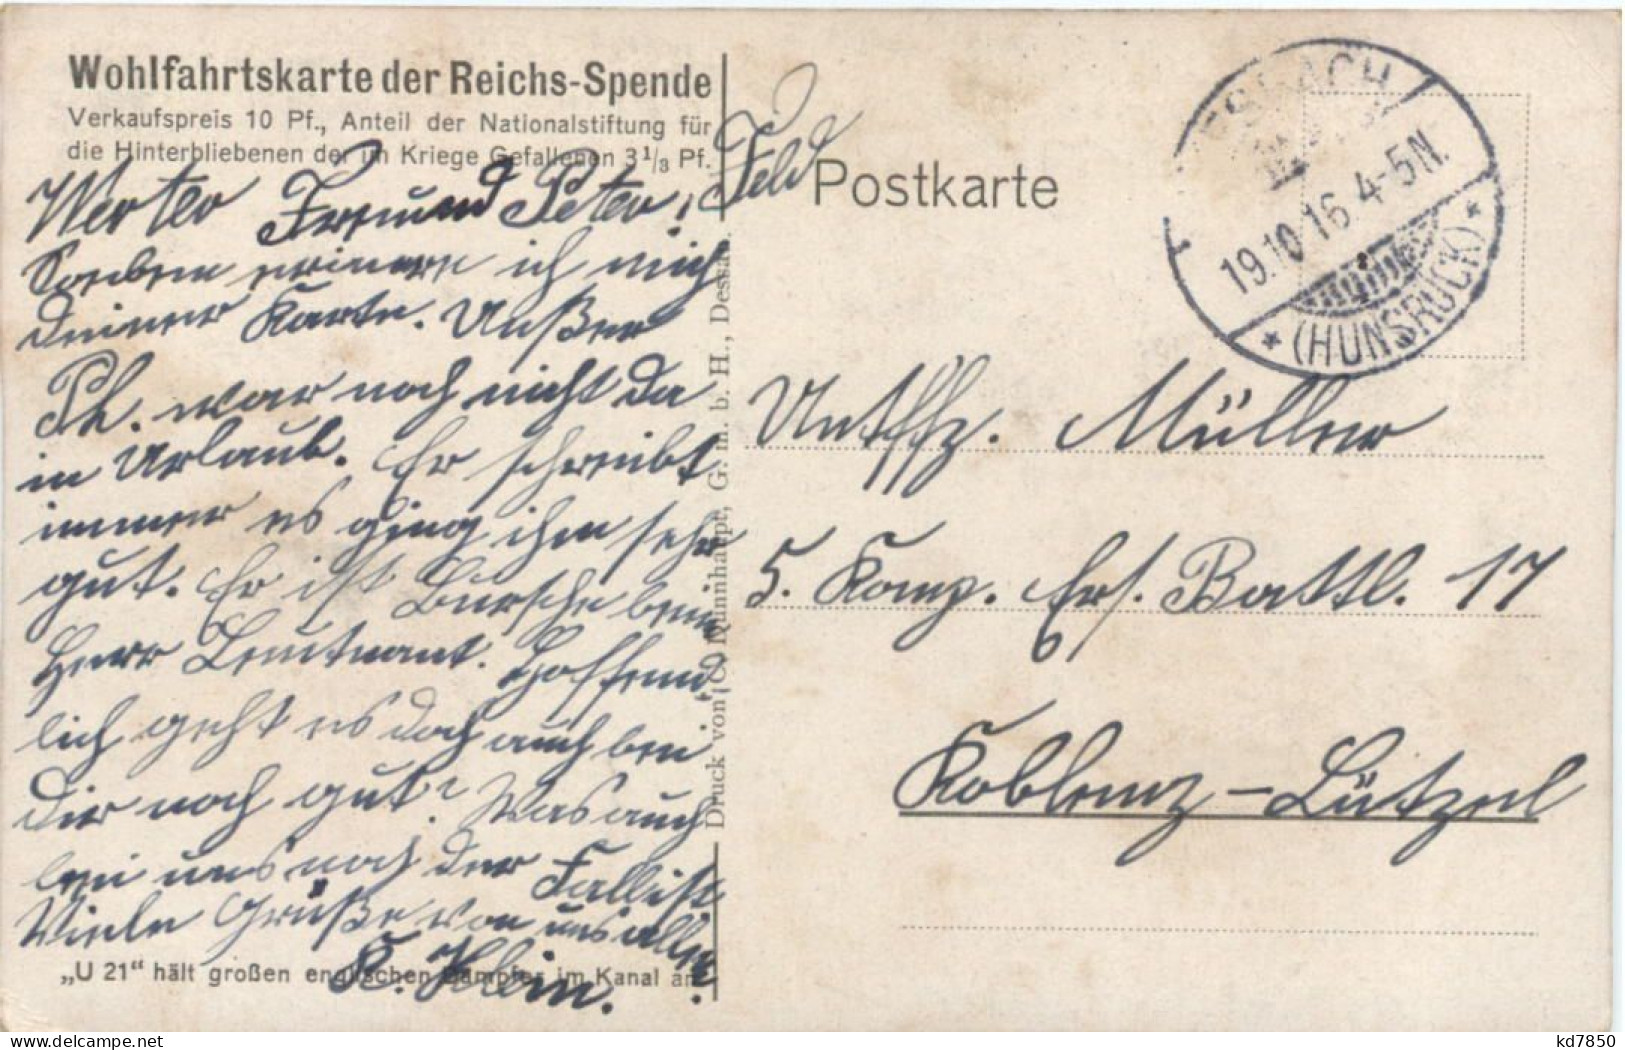 Wohlfahrtskarte der Reichs-Spende
Verkaufspreis 10 Pf., Anteil der Nationalstiftung für
die Hinterbliebenen der im Kriege Gefallenen 3 1/3 Pf.
Werter Freund Peter!
Soeben erinnere ich mich
deiner Karte. Außer
Ph. war noch nicht da
in Urlaub. Er schreibt
immer es ging ihm sehr
gut. Er ist Bursche beim
Herr Leutnant. Hoffend
lich geht es doch auch bei
Dir noch gut? Was auch
bei uns noch der Fall ist
Viele Grüße von uns allen
K. Klein.
„U 21“ hält großen englischen Dampfer im Kanal an.
Druck von G. m. b. H., Dessau.
Feld
Postkarte
19.10.16. 4-5N.
* (HUNSRÜCK) *
Untffz. Müller
5. Komp. Ers. Battl. 17
Koblenz-Lützel
kd7850